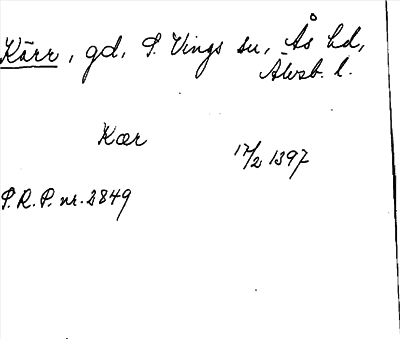 Kärr, gd, S. Vings sn, Ås hd,
Älvsb. l.
Kær
17/2 1397
S.R.P. nr. 2849